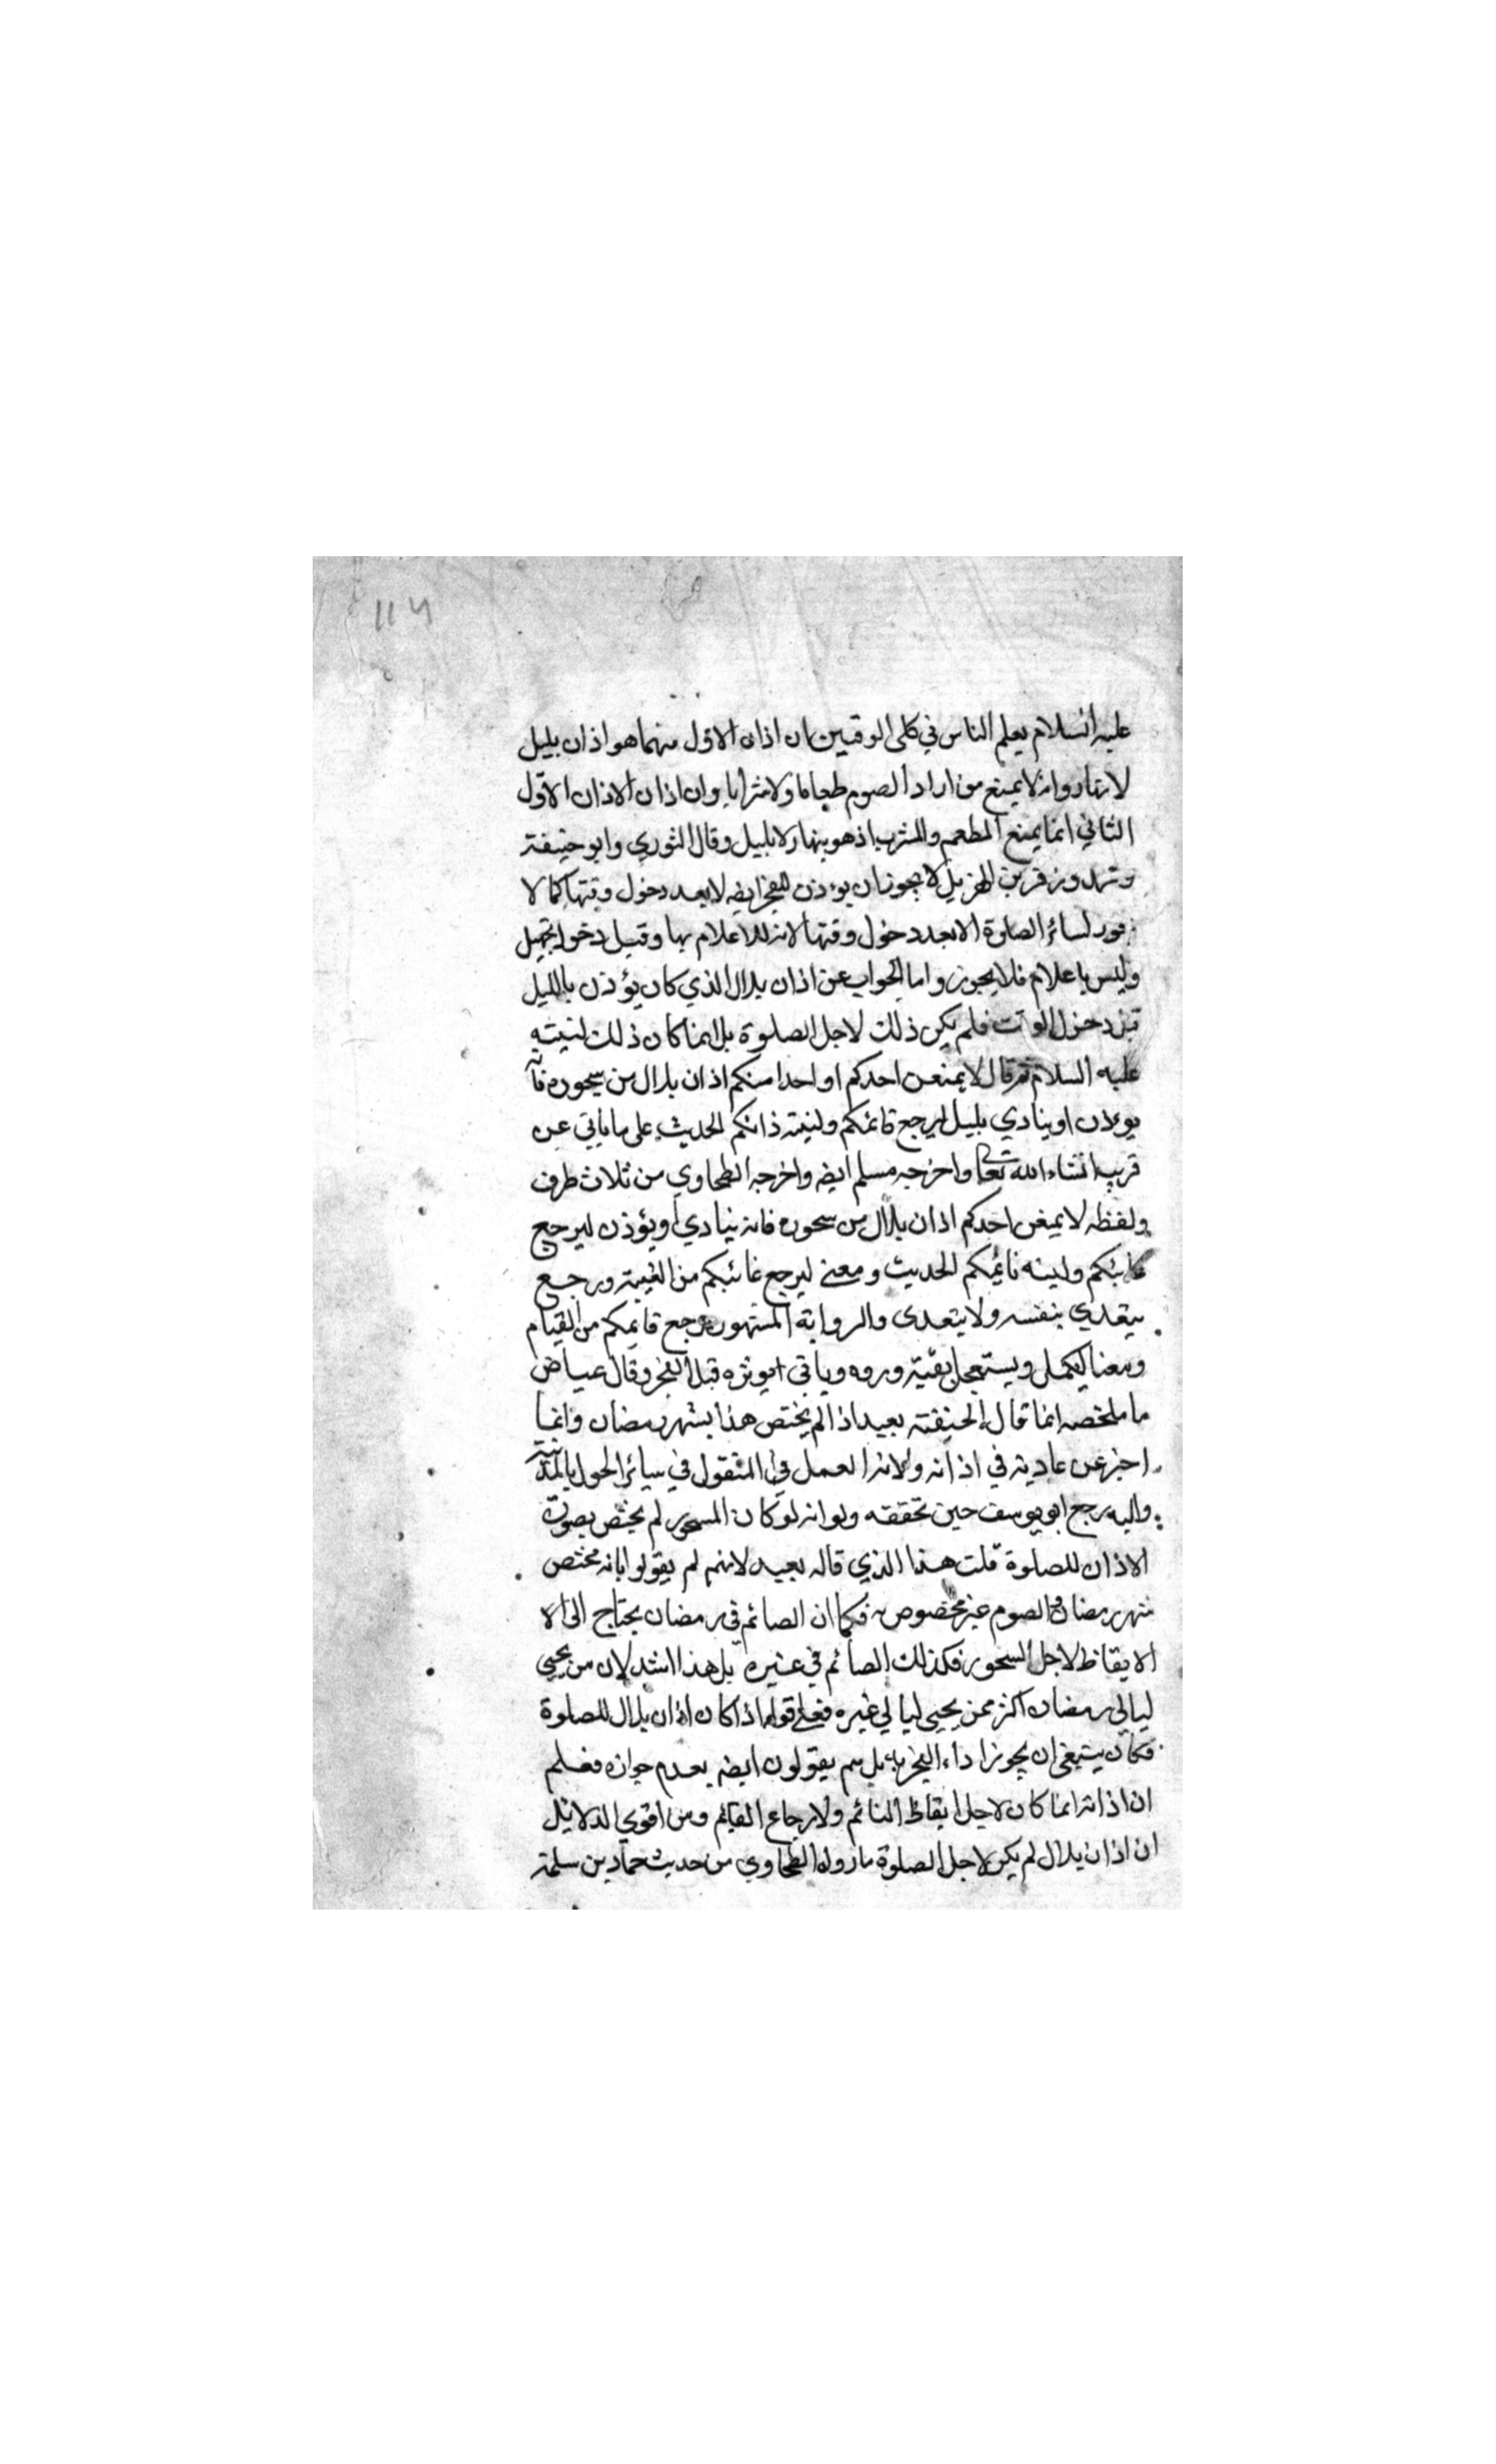 ١١٦
عليه السلام يعلم الناس في كلى الوقتين بان اذان الاول منهما هو اذان بليل
لا بنهار وانه لا يمنع من اراد الصوم طعاما ولا شرابا وان اذان الاذان الاول
الثاني انما يمنع المطعم والمشرب اذ هو بنهار لا بليل وقال الثوري وابو حنيفة
وزفر بن الهزيل لا يجوز ان يوءذن للفجر ايضه لا بعد دخول وقتها كما لا
لسائر الصلوة الا بعد دخول وقتها لانه للاعلام بها وقبل دخوله تجهيل
وليس باعلام فلا يجوز واما الجواب عن اذان بلال الذي كان يؤذن بالليل
قبل دخول الوقت فلم يكن ذلك لاجل الصلوة بل انما كان ذلك لنيته
عليه السلام قال لا يمنعن احدكم او احدا منكم اذان بلال من سحوره فانه
يوءذن او ينادي بليل ليرجع قائمكم ولنيته ذانكم الحديث على ما ياتي عن
قريب انشاء الله تعا واخرجه مسلم ايضه واخرجه الطحاوي من ثلاث طرق
ولفظه لا يمنعن احدكم اذان بلال من سحوره فانه ينادي او يؤذن ليرجع
غائبكم ولينبه نائمكم الحديث ومعنى ليرجع غائبكم من الغيبة ورجع
يتعدي بنفسه ولا يتعدى والرواية المشهورة يرجع قايمكم من القيام
ومعناه ليكمل ويستعجل بقية ورده وياتي ايوتره قبل الفجر وقال عياض
ما ملخصه انما قال الحنيفة بعيد اذا لم يختص هذا بشهر رمضان وانما
اخبر عن عادته في اذانه ولانه العمل في المنقول في سائر الحول بالمدينة
واليه رجع ابو يوسف حين تحققه ولو انه لو كان المسحور لم يختص بصورة
الاذان للصلوة قلت هذا الذي قاله بعيد لانهم لم يقولوا بانه مختص
شهر رمضان والصوم غير مخصوص به فكما ان الصائم في رمضان يحتاج الى الا
الايقاظ لاجل السحور فكذلك الصائم في غيره بل هذا اشد لان من يحيى
ليالي رمضان اكثر ممن يحيى ليالي غيره فعلى قوله اذا كان اذان بلال للصلوة
فكان ينبغى ان يجوز اداء الفجر به بل هم يقولون ايضه بعدم جوازه فعلم
ان اذانه انما كان لاجل ايقاظ النائم ولارجاع القائم ومن اقوي الدلائل
ان اذان بلال لم يكن لاجل الصلوة ما رواه الطحاوي من حديث حماد بن سلمة